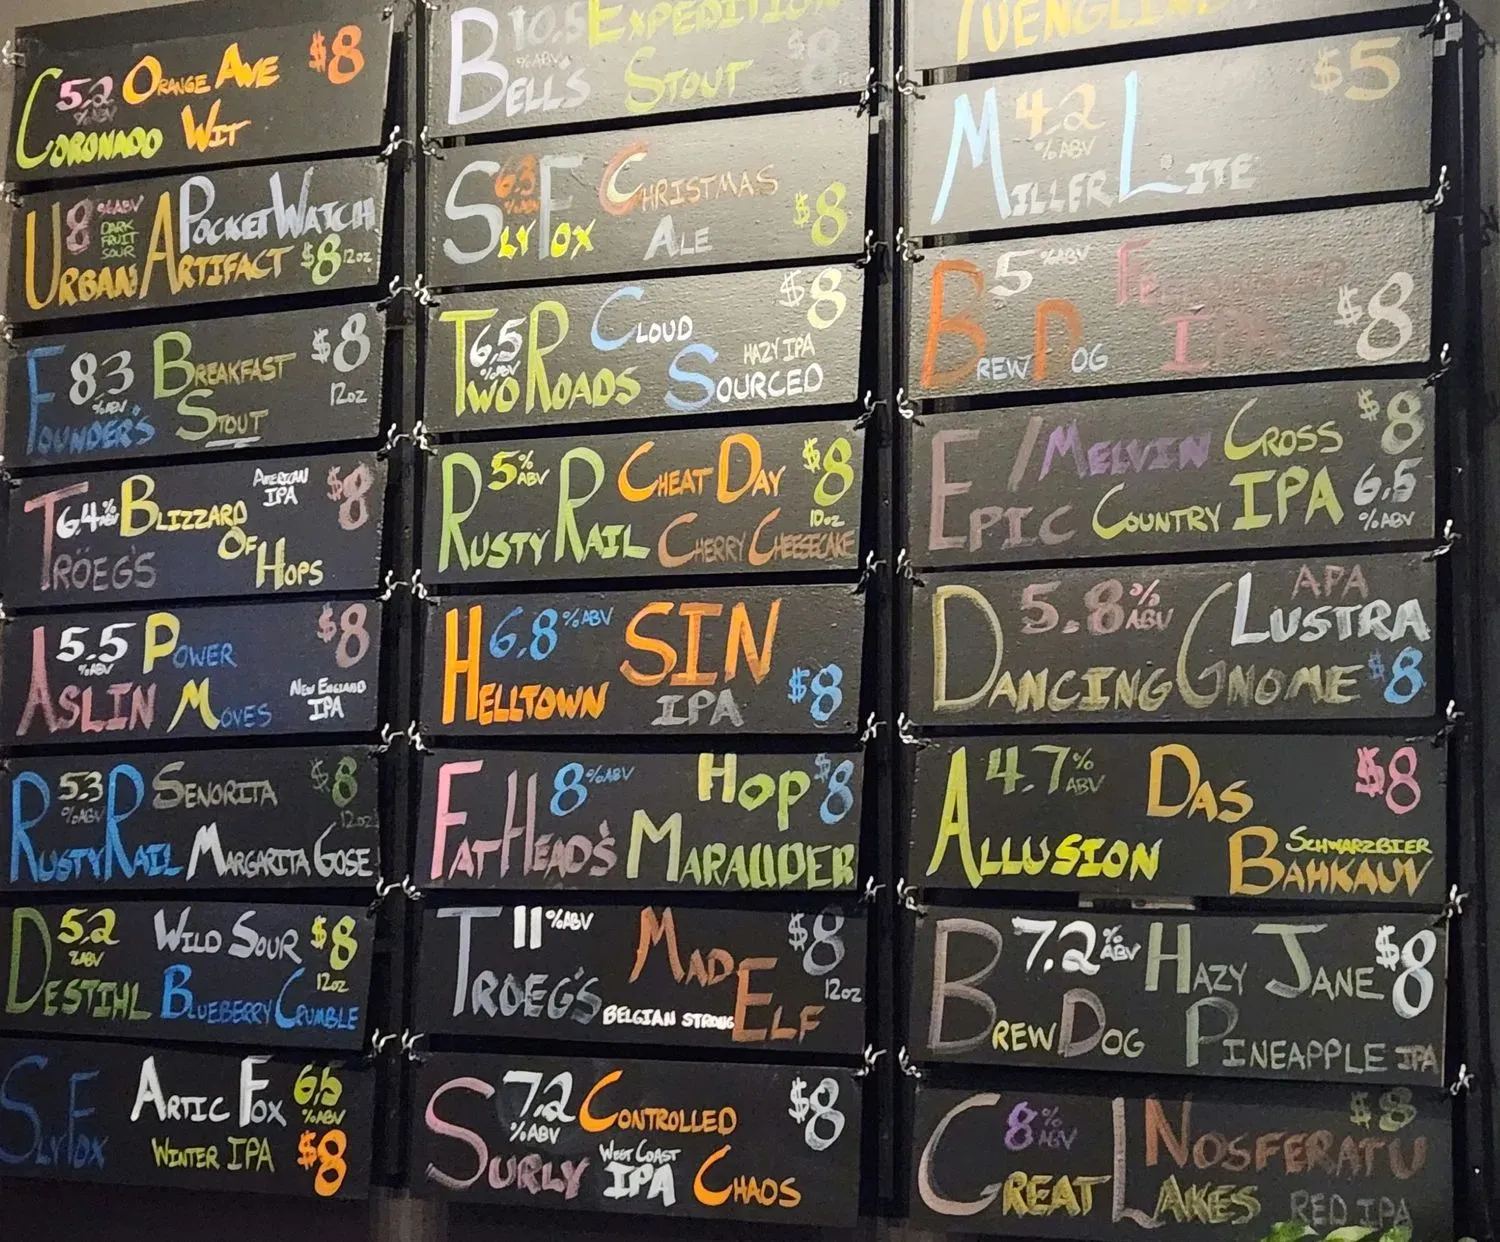 5.2 %ABV Orange Ave $8
Coronado Wit
8 %ABV Dark Fruit Sour Pocket Watch
Urban Artifact $8 12oz
8.3 %ABV Breakfast $8
Founder's Stout 12oz
6.4 %ABV Blizzard American IPA $8
Tröeg's Of Hops
5.5 %ABV Power $8
Aslin Moves New England IPA
5.3 %ABV Senorita $8
Rusty Rail Margarita Gose 12oz
5.2 %ABV Wild Sour $8
Destihl Blueberry Crumble 12oz
Artic Fox 6.5 %ABV
Sly Fox Winter IPA $8
10.5 %ABV Expedition $8
Bell's Stout
6.3 %ABV Christmas $8
Sly Fox Ale
6.5 %ABV Cloud $8
Two Roads Sourced Hazy IPA
5% ABV Cheat Day $8
Rusty Rail Cherry Cheesecake 10oz
6.8 %ABV SIN
Helltown IPA $8
8 %ABV Hop $8
Fat Head's Marauder
11 %ABV Mad $8
Tröeg's Belgian Strong Elf 12oz
7.2 %ABV Controlled $8
Surly West Coast IPA Chaos
Yuengling
4.2 %ABV $5
Miller Lite
5 %ABV $8
Brew Dog IPA
/Melvin Cross $8
Epic Country IPA 6.5 %ABV
5.8 %ABV Lustra APA
Dancing Gnome $8
4.7 %ABV Das $8
Allusion Schwarzbier Bahkauv
7.2 %ABV Hazy Jane $8
Brew Dog Pineapple IPA
8 %ABV Nosferatu $8
Great Lakes Red IPA